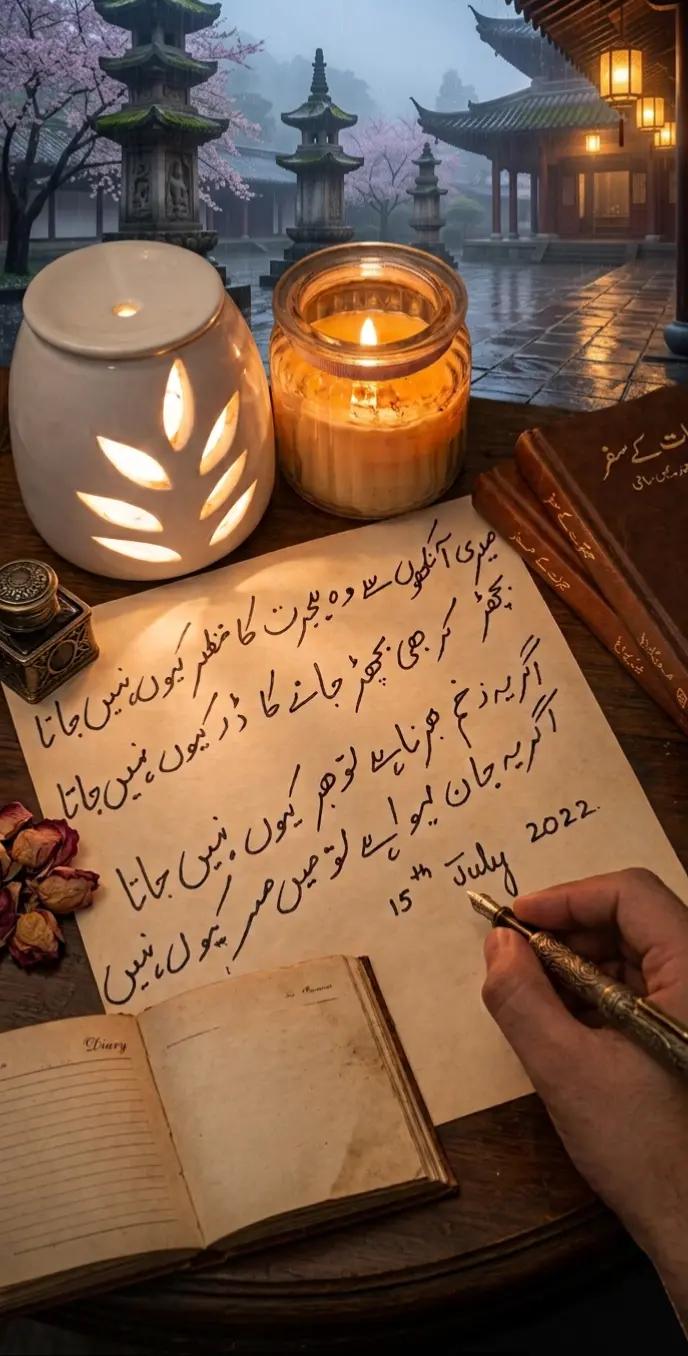 میری آنکھوں سے وہ ہجرت کا منظر کیوں نہیں جاتا
بچھڑ کر بھی بچھڑ جانے کا ڈر کیوں نہیں جاتا
اگر یہ زخم بھرنا ہے تو بھر کیوں نہیں جاتا
اگر یہ جان لیوا ہے تو میں مر کیوں نہیں
15th July 2022.
کے سفر
Diary